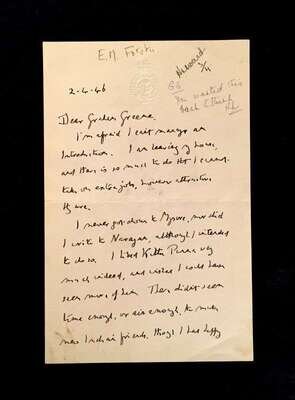 E.M. Forster
Answered
3/4
GG
You wanted this
back I think
2-4-46
Dear Graham Greene
I'm afraid I can't manage an
Introduction. I am leaving my house,
and there is so much to do that I cannot
take on extra jobs, however attractive
they are.
I never got down to Mysore, nor did
I write to Narayan, although I intended
to do so. I liked Raja very
much indeed, and wished I could have
seen more of him. There didn't seem
time enough, or air enough, to make
new Indian friends, though I had happy